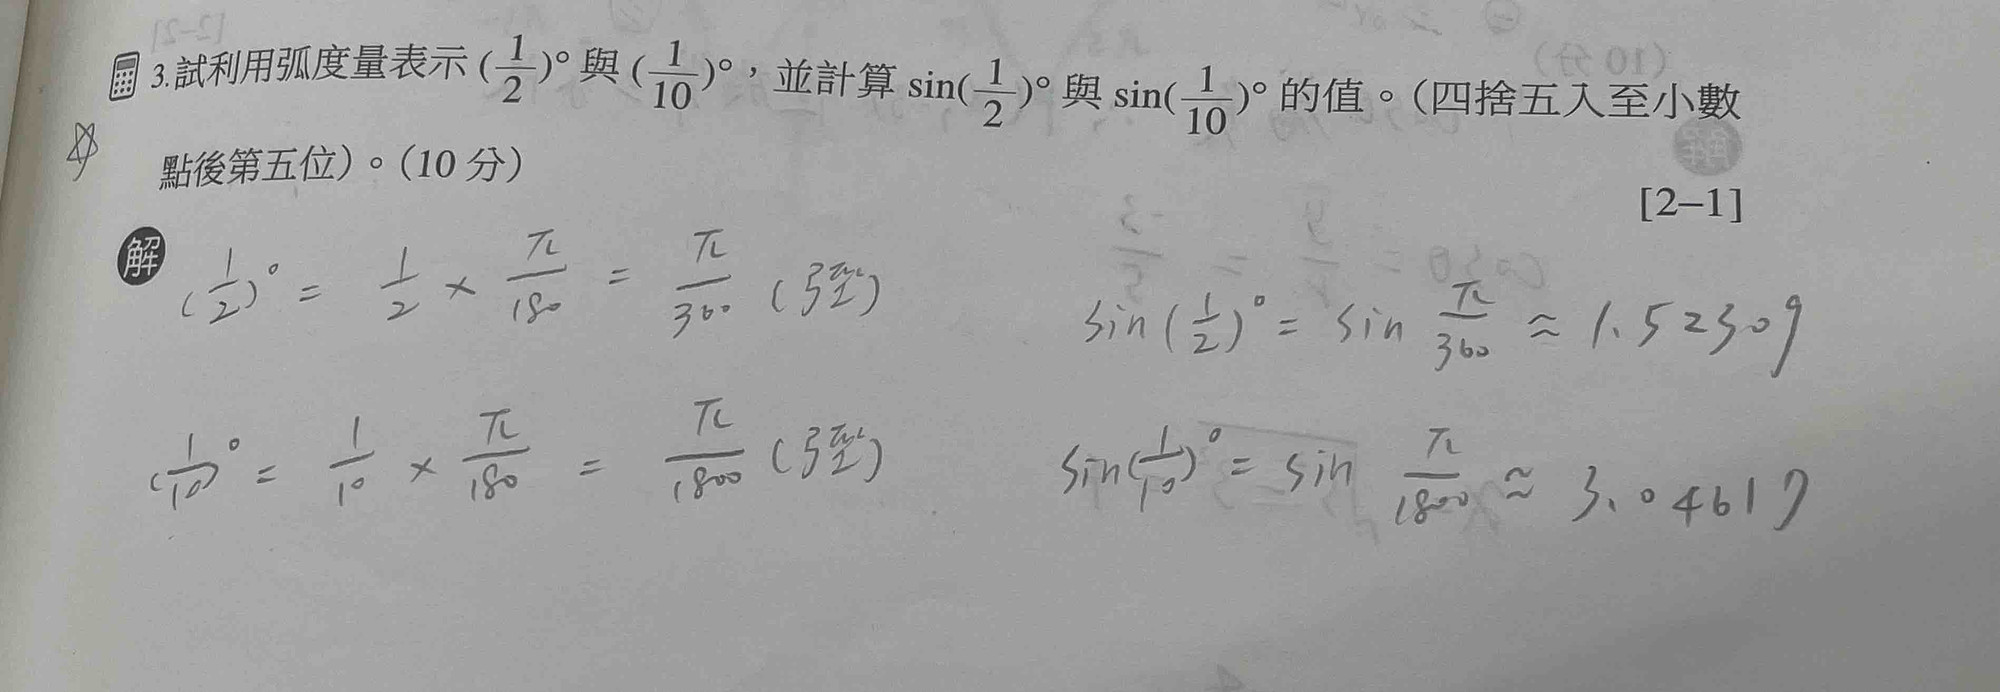 3.試利用弧度量表示(1/2)°與(1/10)°，並計算sin(1/2)°與sin(1/10)°的值。(四捨五入至小數
點後第五位)。(10分)
[2-1]
解
(1/2)° = 1/2 × π/180 = π/360 (弳)
sin(1/2)° = sin π/360 ≈ 1.52309
(1/10)° = 1/10 × π/180 = π/1800 (弳)
sin(1/10)° = sin π/1800 ≈ 3.04617